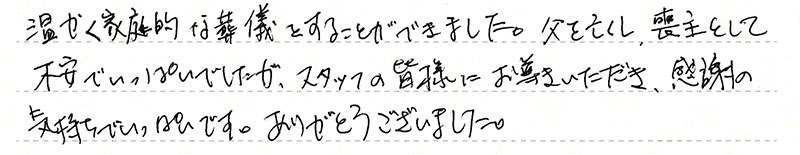 温かく家庭的な葬儀をすることができました。父を亡くし、喪主として
不安でいっぱいでしたが、スタッフの皆様にお導きいただき、感謝の
気持ちでいっぱいです。ありがとうございました。